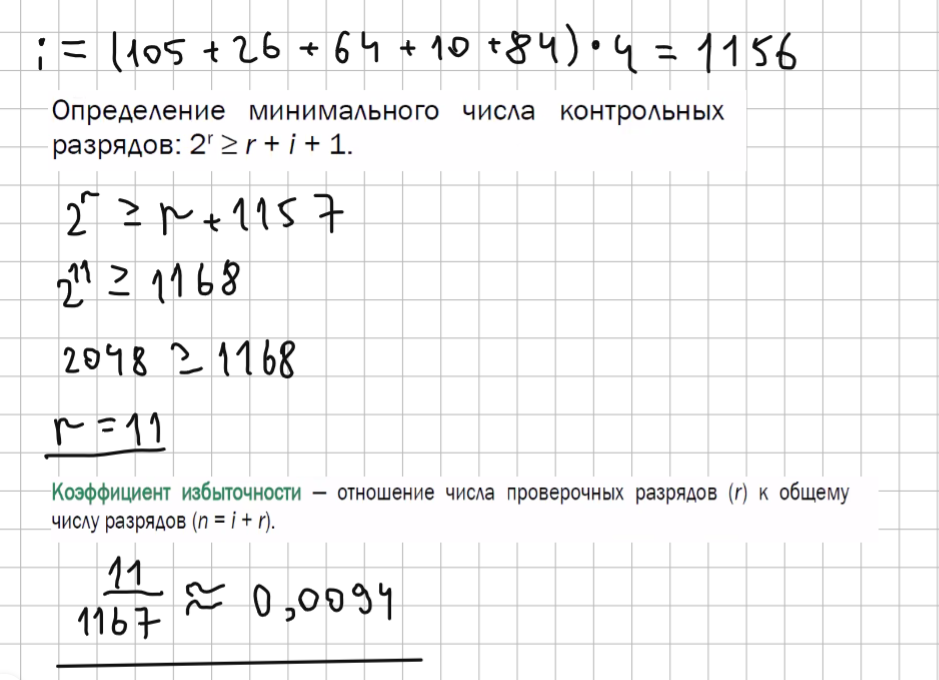 i = (105 + 26 + 64 + 10 + 84) · 4 = 1156
Определение минимального числа контрольных
разрядов: 2ʳ ≥ r + i + 1.
2ʳ ≥ r + 1157
2¹¹ ≥ 1168
2048 ≥ 1168
r = 11
Коэффициент избыточности — отношение числа проверочных разрядов (r) к общему
числу разрядов (n = i + r).
11
1167 ≈ 0,0094